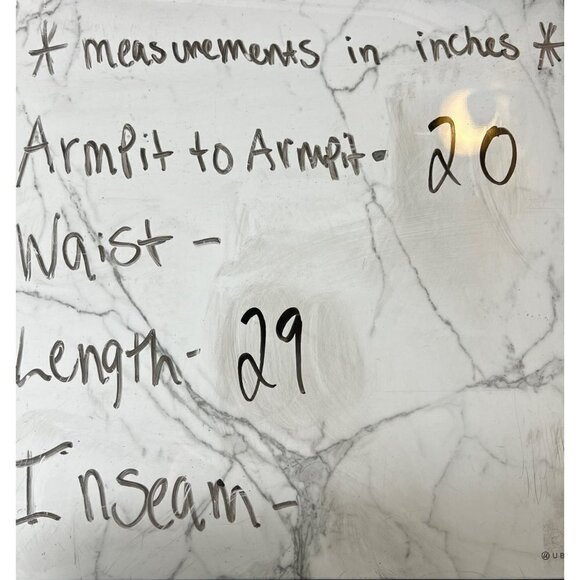 * measurements in inches *
Armpit to Armpit - 20
Waist -
Length - 29
Inseam -
UB